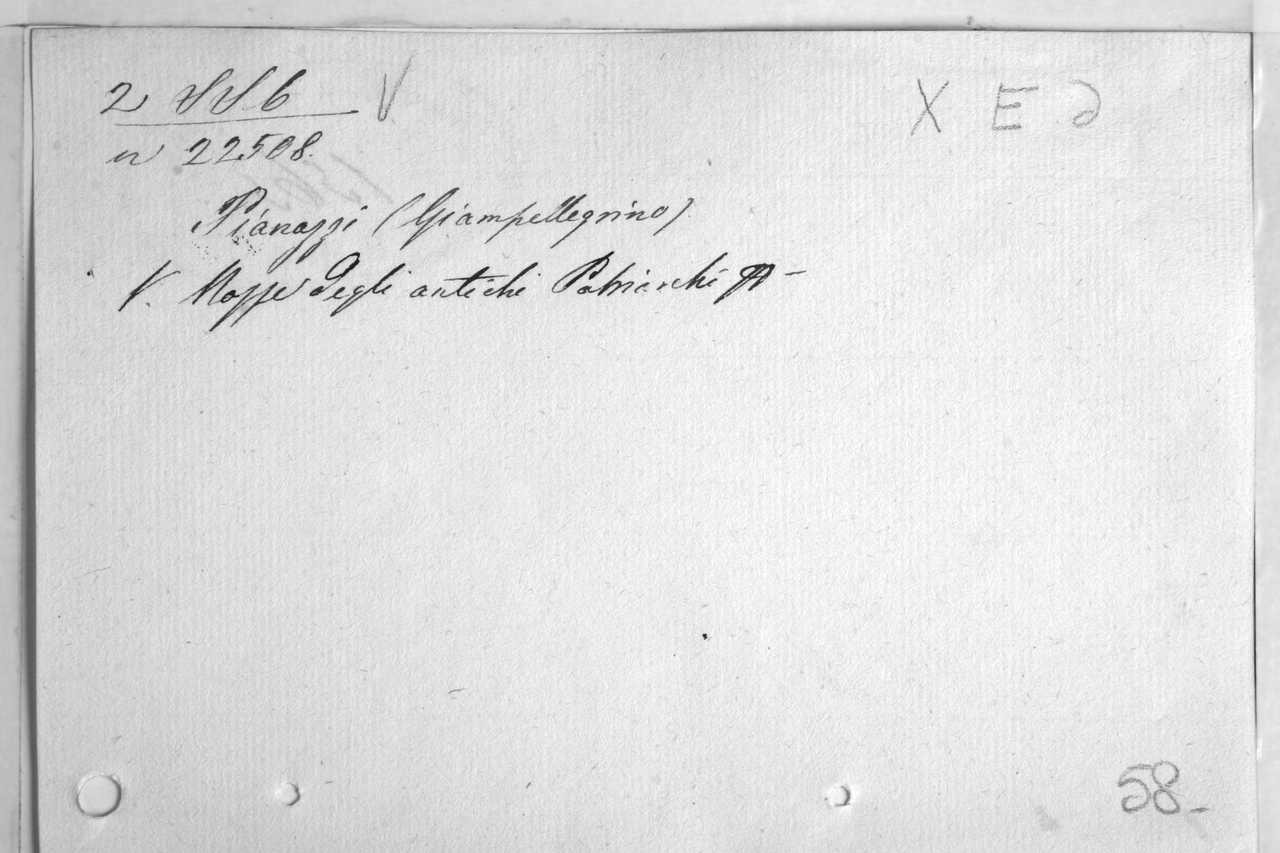 2 SS 6 V X E 2
n 22508.
Pianazzi (Giampellegrino)
V. Mosse degli antichi Patriarchi
58-